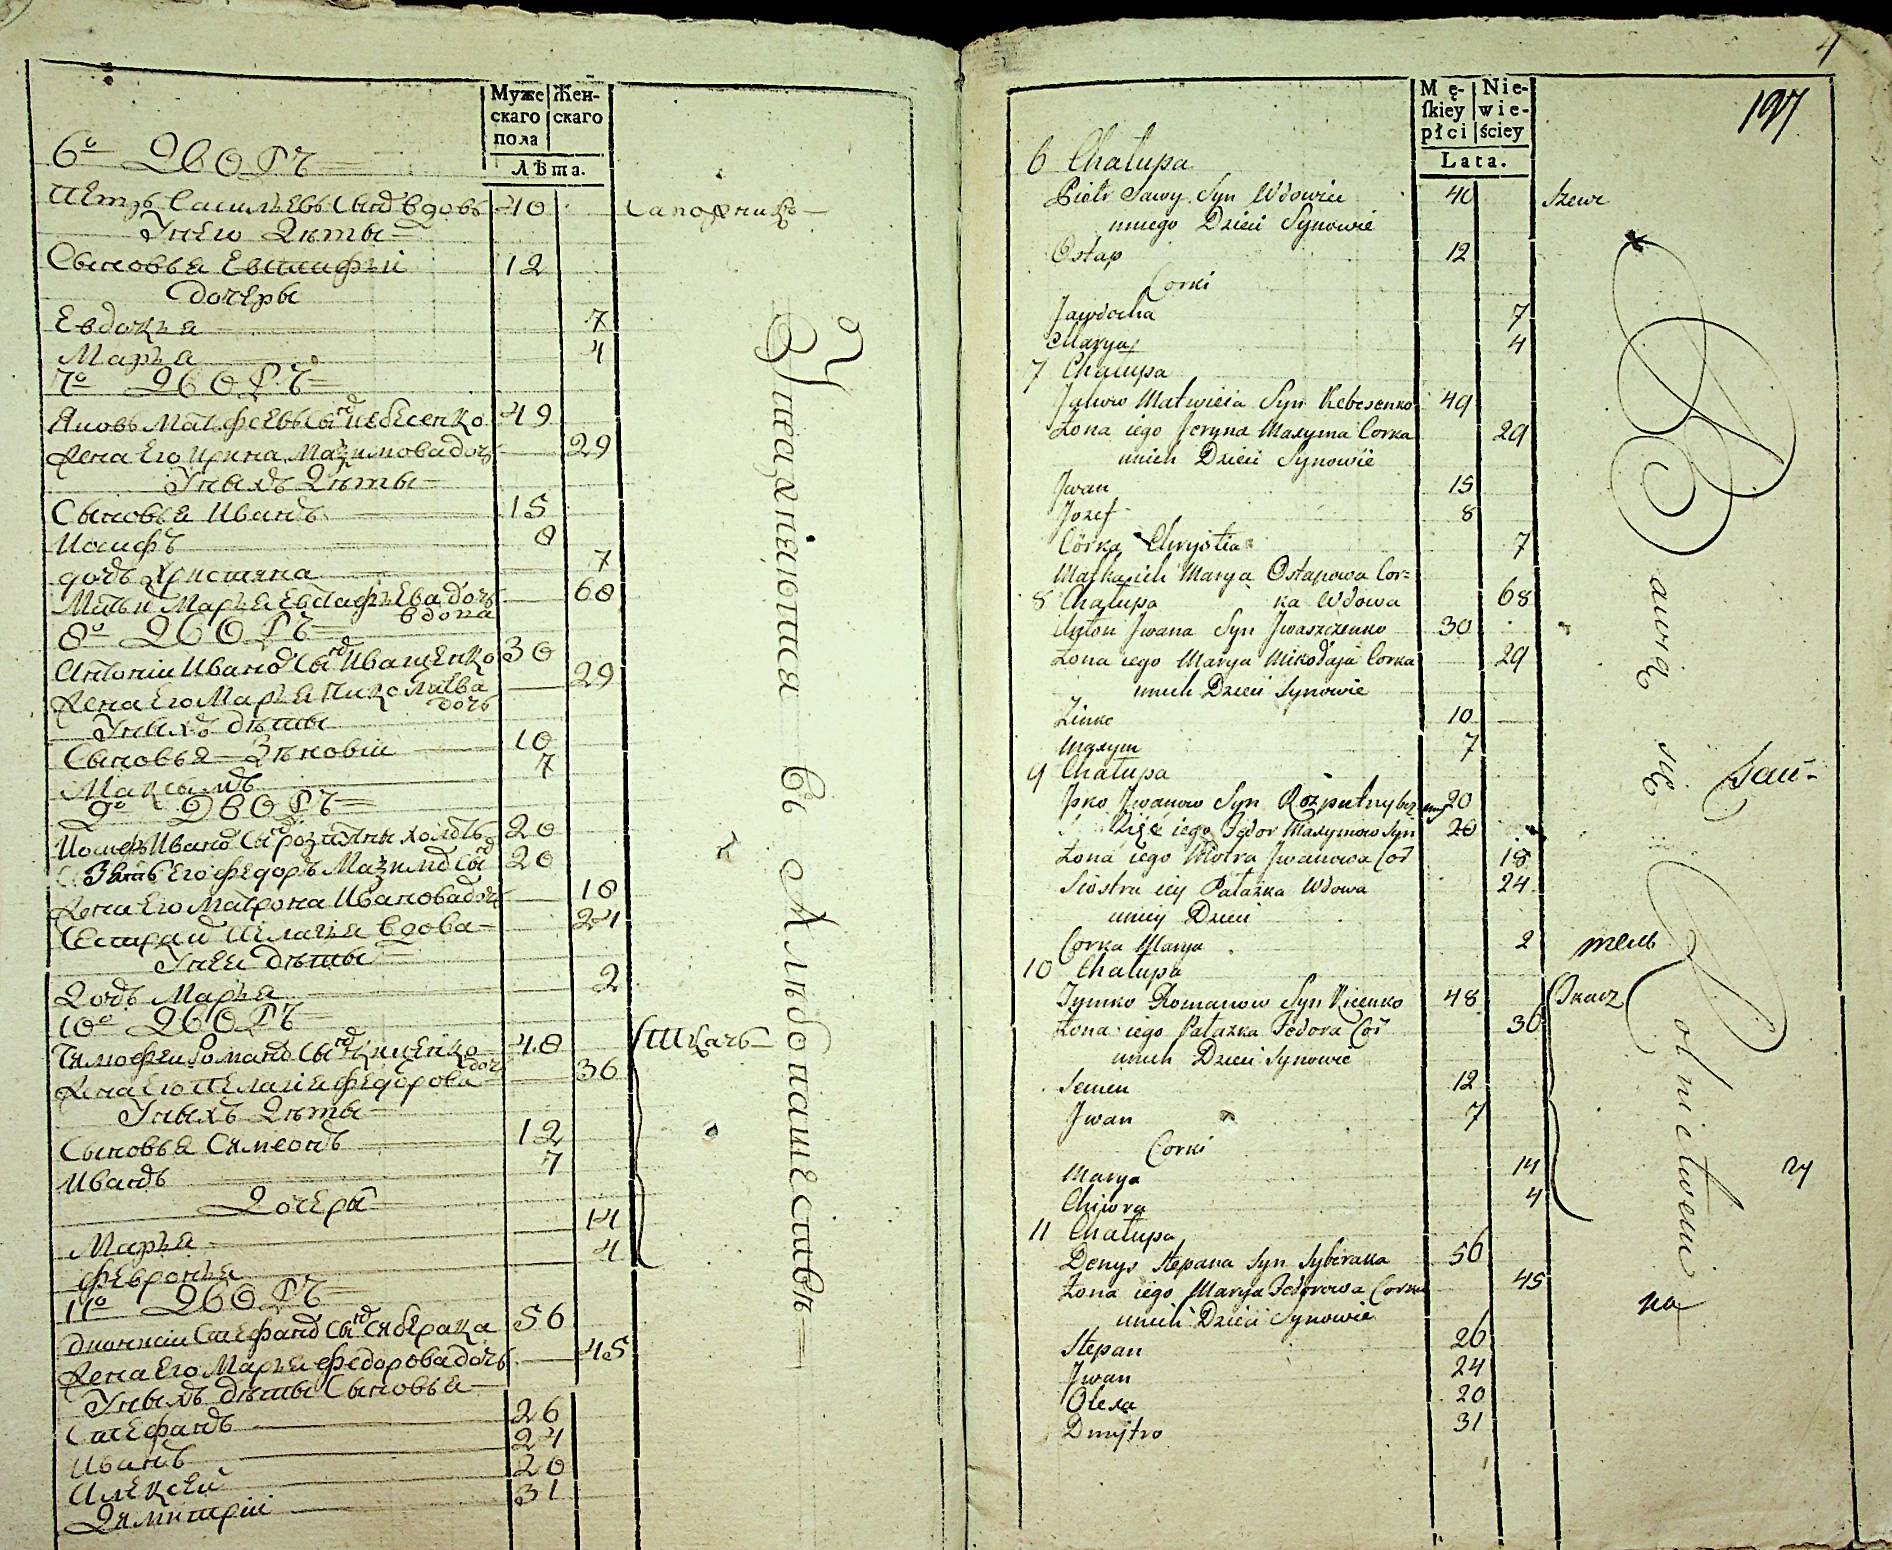 Муже
скаго
пола
Жен-
скаго
Лѣта.
6º Дворъ
Петръ Савинъ Сынъ вдовъ 40 Сапожникъ
Унего Дѣти
Сыновья Евстафѣй 12
дочеры
Евдокья 7
Марья 4
7º Дворъ
Яковъ Матфеевъ Сынъ Небесенко 49
Жена Его Ирина Мазимова дочь 29
Унихъ Дѣти
Сыновья Иванъ 15
Иосифъ 8
дочь Христина 7
Мать ихъ Марья Евстафьева дочь 68
вдова
8º Дворъ
Антоній Иванъ Сынъ Иващенко 30
Жена Его Марья Николаева 29
дочь
Унихъ дѣти
Сыновья Зѣновій 10
Максымъ 7
9º Дворъ
Иосифъ Иванъ Сынъ 20
Зять Его Федоръ Мазимъ Сынъ 20
Жена Его Матрона Иванова дочь 18
Сестра Пелагія вдова 24
Унеи дѣти
Дочь Марья 2
10º Дворъ
Тимофей Романъ Сынъ Киценко 48 Ткачь
Жена Его Пелагія Федорова дочь 36
Унихъ Дѣти
Сыновья Симеонъ 12
Иванъ 7
Дочеры
Марья 14
Февронья 4
11º Дворъ
Дионисій Стефанъ Сынъ Сиберака 56
Жена Его Марья Федорова дочь 45
Унихъ дѣти Сыновья
Стефанъ 26
Иванъ 24
Алексей 20
Димитрій 31
Упражняются Въ Хлѣбопашествѣ
4
197
Mę-
skiey
płci
Nie-
wie-
ściey
Lata.
6 Chałupa
Piotr Sawy Syn Wdowiec 40 Szewc
uniego Dzieci Synowie
Ostap 12
Corki
Jawdocha 7
Marya 4
7 Chałupa
Jakow Matwieia Syn Nebesenko 49
Żona iego Jeryna Maxyma Corka 29
unich Dzieci Synowie
Jwan 15
Jozef 8
Córka Chrystia 7
Matka ich Marya Ostapowa Cor=
8 Chałupa ka Wdowa 68
Anton Jwana Syn Jwaszczenko 30
Żona iego Marya Mikołaja Corka 29
unich Dzieci Synowie
Zinko 10
Maxym 7
9 Chałupa
Jwanow Syn 20
Zięć iego Fedor Maxymow Syn 20
Żona iego Motra Jwanowa Cor 18
Siostra iey Pałażka Wdowa 24
uniey Dzieci
Corka Marya 2
10 Chałupa
Tymko Romanow Syn Kicenko 48 Tkacz
Żona iego Pałażka Fedora Cor 36
unich Dzieci Synowie
Semen 12
Jwan 7
Corki
Marya 14
Chiwra 4
11 Chałupa
Denys Stepana Syn Syberaka 56
Żona iego Marya Fedorowa Corka 45
unich Dzieci Synowie
Stepan 26
Jwan 24
Olexa 20
Dmytro 31
Bawią się Rolnictwem
тель
на